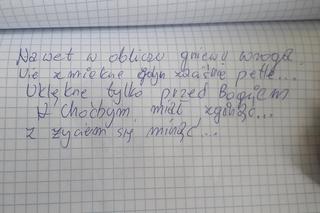 Nawet w obliczu gniewu wroga
Nie zmięknę gdym zaciśnie pętle...
Uklęknę tylko przed Bogiem
A choćbym miał zginąć...
z życiem się minąć...